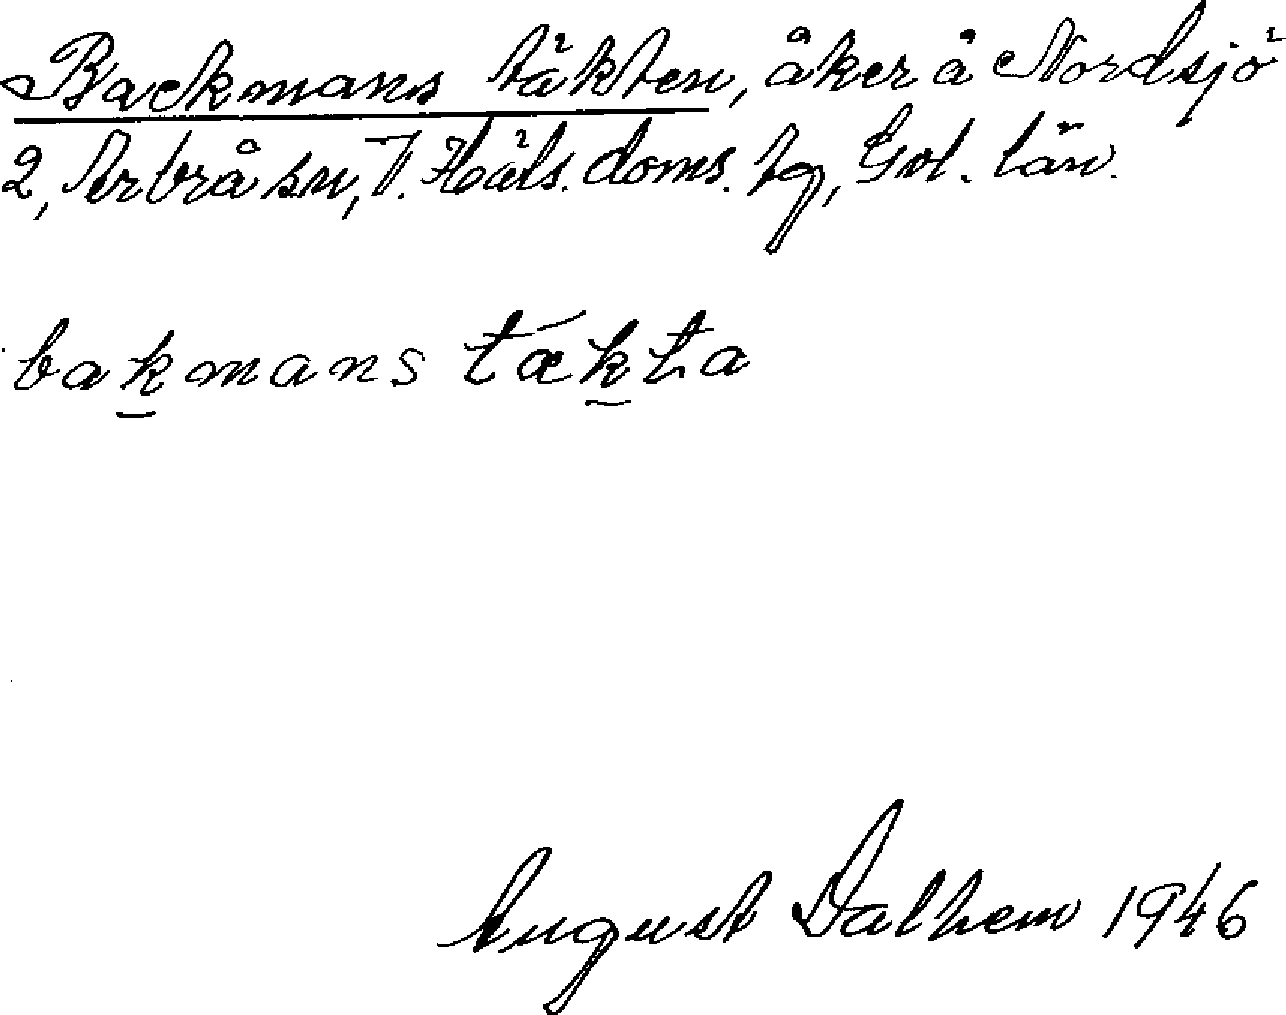 Backmans täkten, åker å Nordsjö
2, Arbrå sn, V. Häls. doms. hg, Gvl. län.
bakmans tækta
August Dalhem 1946